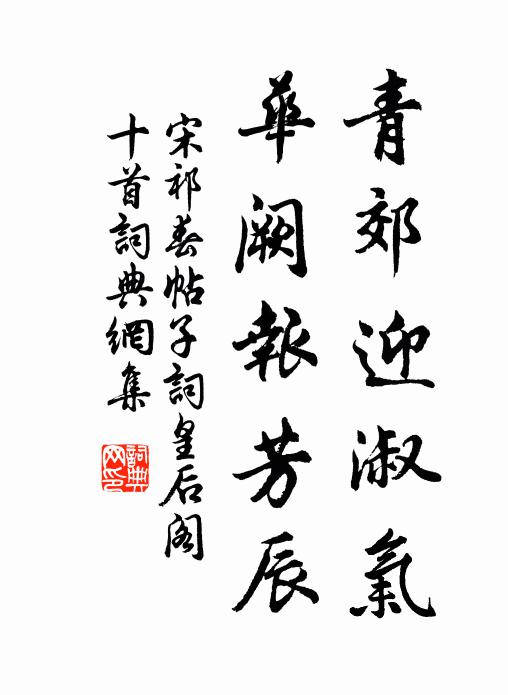 青郊迎淑氣
華闕報芳辰
宋祁春帖子詞皇后閣
十首詞典網集
詞典网印